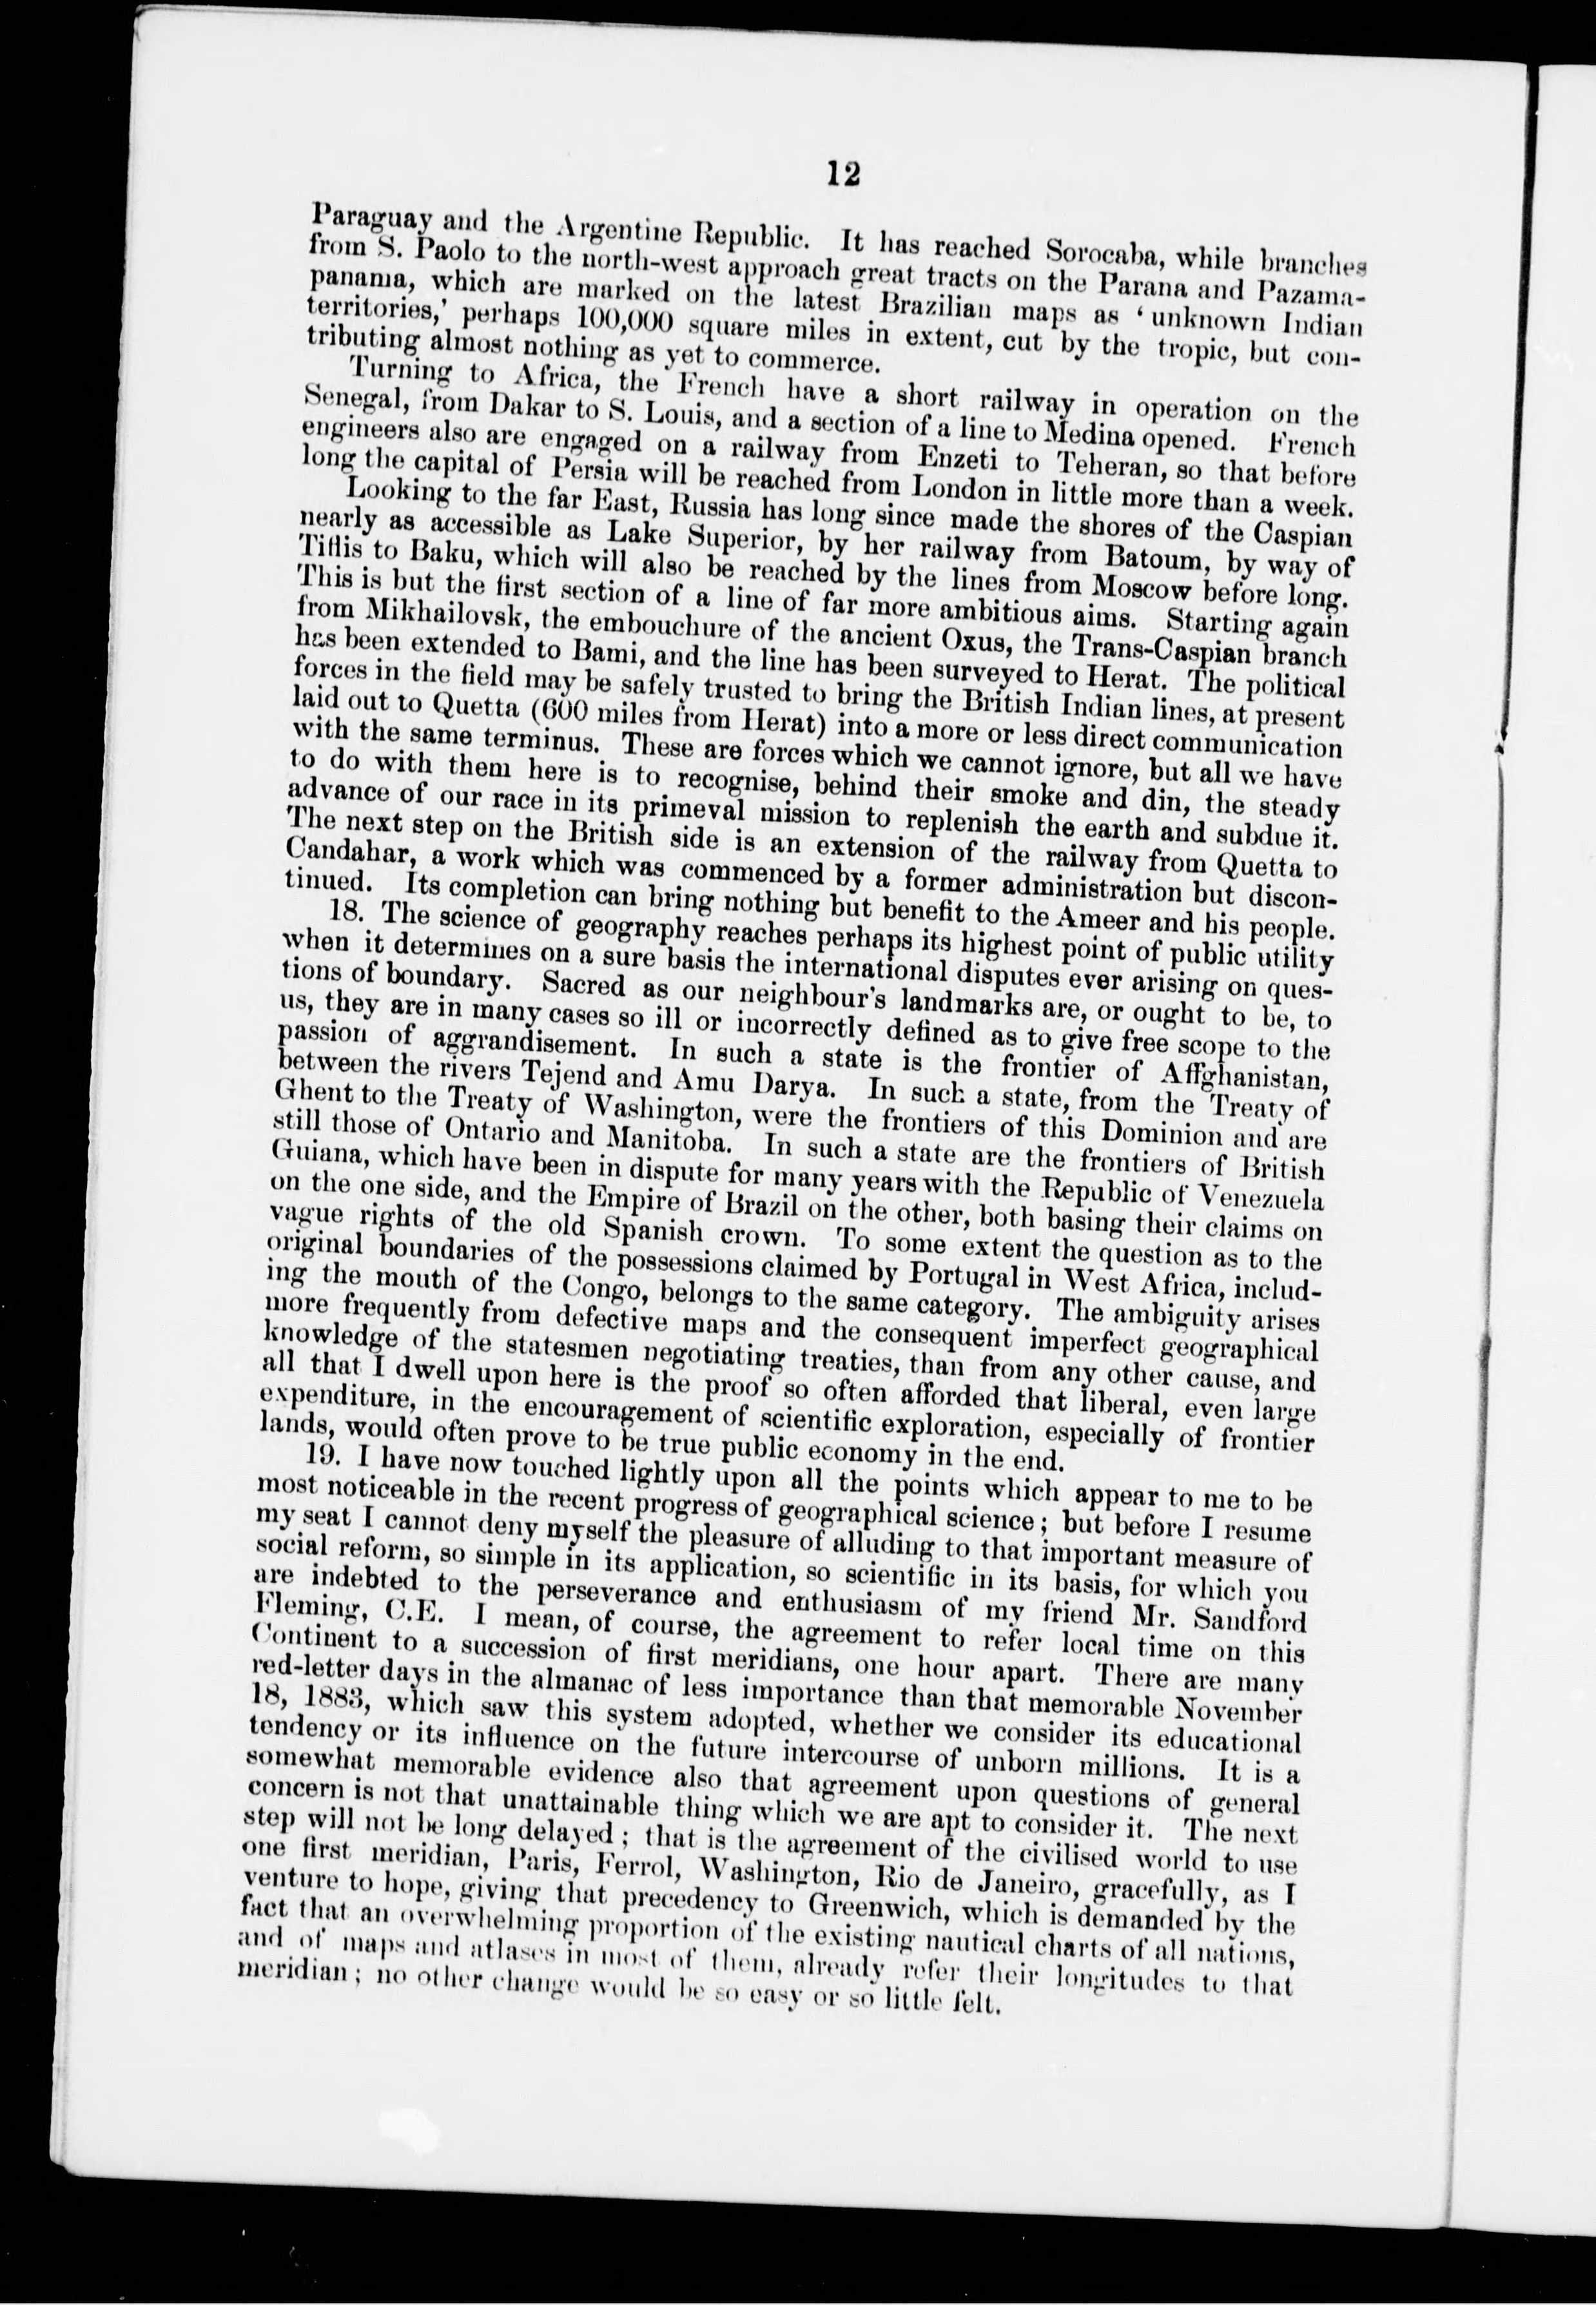 12
Paraguay and the Argentine Republic. It has reached Sorocaba, while branches
from S. Paolo to the north-west approach great tracts on the Parana and Pazama-
panama, which are marked on the latest Brazilian maps as ‘unknown Indian
territories,’ perhaps 100,000 square miles in extent, cut by the tropic, but con-
tributing almost nothing as yet to commerce.
Turning to Africa, the French have a short railway in operation on the
Senegal, from Dakar to S. Louis, and a section of a line to Medina opened. French
engineers also are engaged on a railway from Enzeti to Teheran, so that before
long the capital of Persia will be reached from London in little more than a week.
Looking to the far East, Russia has long since made the shores of the Caspian
nearly as accessible as Lake Superior, by her railway from Batoum, by way of
Tiflis to Baku, which will also be reached by the lines from Moscow before long.
This is but the first section of a line of far more ambitious aims. Starting again
from Mikhailovsk, the embouchure of the ancient Oxus, the Trans-Caspian branch
has been extended to Bami, and the line has been surveyed to Herat. The political
forces in the field may be safely trusted to bring the British Indian lines, at present
laid out to Quetta (600 miles from Herat) into a more or less direct communication
with the same terminus. These are forces which we cannot ignore, but all we have
to do with them here is to recognise, behind their smoke and din, the steady
advance of our race in its primeval mission to replenish the earth and subdue it.
The next step on the British side is an extension of the railway from Quetta to
Candahar, a work which was commenced by a former administration but discon-
tinued. Its completion can bring nothing but benefit to the Ameer and his people.
18. The science of geography reaches perhaps its highest point of public utility
when it determines on a sure basis the international disputes ever arising on ques-
tions of boundary. Sacred as our neighbour's landmarks are, or ought to be, to
us, they are in many cases so ill or incorrectly defined as to give free scope to the
passion of aggrandisement. In such a state is the frontier of Affghanistan,
between the rivers Tejend and Amu Darya. In such a state, from the Treaty of
Ghent to the Treaty of Washington, were the frontiers of this Dominion and are
still those of Ontario and Manitoba. In such a state are the frontiers of British
Guiana, which have been in dispute for many years with the Republic of Venezuela
on the one side, and the Empire of Brazil on the other, both basing their claims on
vague rights of the old Spanish crown. To some extent the question as to the
original boundaries of the possessions claimed by Portugal in West Africa, includ-
ing the mouth of the Congo, belongs to the same category. The ambiguity arises
more frequently from defective maps and the consequent imperfect geographical
knowledge of the statesmen negotiating treaties, than from any other cause, and
all that I dwell upon here is the proof so often afforded that liberal, even large
expenditure, in the encouragement of scientific exploration, especially of frontier
lands, would often prove to be true public economy in the end.
19. I have now touched lightly upon all the points which appear to me to be
most noticeable in the recent progress of geographical science; but before I resume
my seat I cannot deny myself the pleasure of alluding to that important measure of
social reform, so simple in its application, so scientific in its basis, for which you
are indebted to the perseverance and enthusiasm of my friend Mr. Sandford
Fleming, C.E. I mean, of course, the agreement to refer local time on this
Continent to a succession of first meridians, one hour apart. There are many
red-letter days in the almanac of less importance than that memorable November
18, 1883, which saw this system adopted, whether we consider its educational
tendency or its influence on the future intercourse of unborn millions. It is a
somewhat memorable evidence also that agreement upon questions of general
concern is not that unattainable thing which we are apt to consider it. The next
step will not be long delayed; that is the agreement of the civilised world to use
one first meridian, Paris, Ferrol, Washington, Rio de Janeiro, gracefully, as I
venture to hope, giving that precedency to Greenwich, which is demanded by the
fact that an overwhelming proportion of the existing nautical charts of all nations,
and of maps and atlases in most of them, already refer their longitudes to that
meridian; no other change would be so easy or so little felt.